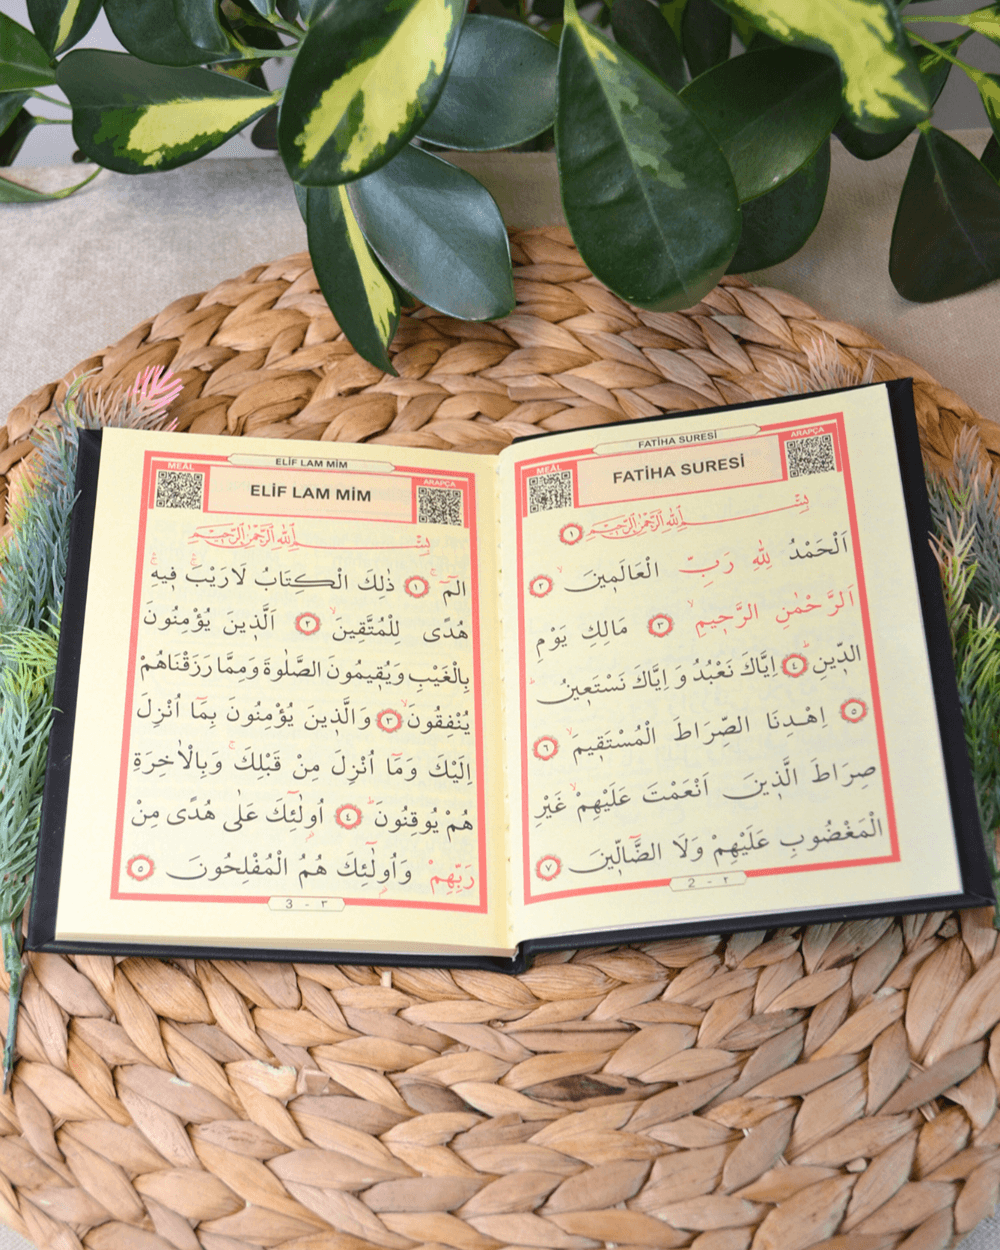 FATİHA SURESİ
MEÂL
FATİHA SURESİ
ARAPÇA
بِسْمِ اللّٰهِ الرَّحْمٰنِ الرَّحِيمِ ١
اَلْحَمْدُ لِلّٰهِ رَبِّ الْعَالَمِينَ ٢
اَلرَّحْمٰنِ الرَّحِيمِ ٣ مَالِكِ يَوْمِ
الدِّينِ ٤ اِيَّاكَ نَعْبُدُ وَ اِيَّاكَ نَسْتَعِينُ
٥ اِهْدِنَا الصِّرَاطَ الْمُسْتَقِيمَ ٦
صِرَاطَ الَّذِينَ اَنْعَمْتَ عَلَيْهِمْ غَيْرِ
الْمَغْضُوبِ عَلَيْهِمْ وَلَا الضَّٓالِّينَ ٧
2 - ٢
ELİF LAM MİM
MEÂL
ELİF LAM MİM
ARAPÇA
بِسْمِ اللّٰهِ الرَّحْمٰنِ الرَّحِيمِ
الٓمٓ ١ ذٰلِكَ الْكِتَابُ لَا رَيْبَ فِيهِ
هُدًى لِلْمُتَّقِينَ ٢ اَلَّذِينَ يُؤْمِنُونَ
بِالْغَيْبِ وَيُقِيمُونَ الصَّلٰوةَ وَمِمَّا رَزَقْنَاهُمْ
يُنْفِقُونَ ٣ وَالَّذِينَ يُؤْمِنُونَ بِمَٓا اُنْزِلَ
اِلَيْكَ وَمَٓا اُنْزِلَ مِنْ قَبْلِكَ وَبِالْاٰخِرَةِ
هُمْ يُوقِنُونَ ٤ اُولٰٓئِكَ عَلٰى هُدًى مِنْ
رَبِّهِمْ وَاُولٰٓئِكَ هُمُ الْمُفْلِحُونَ ٥
3 - ٣